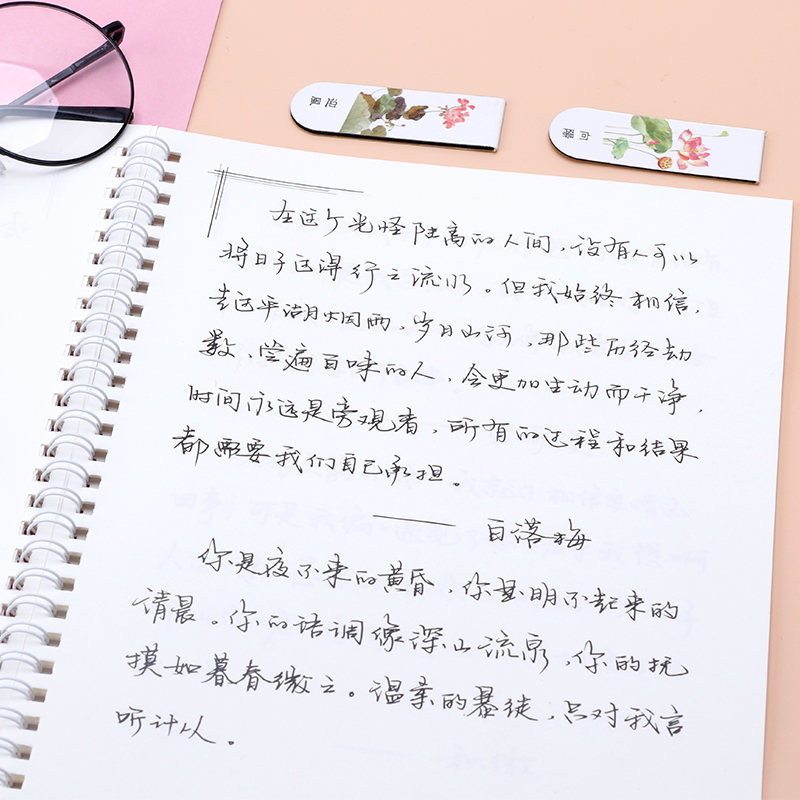 在这个光怪陆离的人间，没有人可以
将日子过得行云流水。但我始终相信，
走过平湖烟雨，岁月山河，那些历经劫
数、尝遍百味的人，会更加生动而干净，
时间永远是旁观者，所有的过程和结果
都需要我们自己承担。
—— 白落梅
你是夜不来的黄昏，你是明不起来的
清晨。你的语调像深山流泉，你的抚
摸如暮春微云。温柔的暴徒，只对我言
听计从。